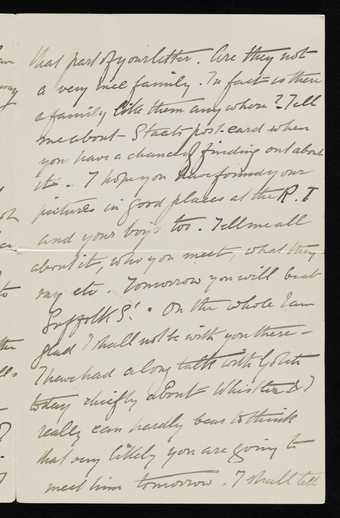 that part of your letter. Are they not
a very nice family. In fact is there
a family like them anywhere? Tell
me about Staats post-card when
you have a chance of finding out about
it. I hope you have found your
pictures in good places at the R.I
and your boy's too. Tell me all
about it, who you meet, what they
say etc. Tomorrow you will be at
Suffolk St. On the whole I am
glad I shall not be with you there -
I have had a long talk with
today chiefly about Whistler & I
really can hardly bear to think
that very likely you are going to
meet him tomorrow. I shall tell